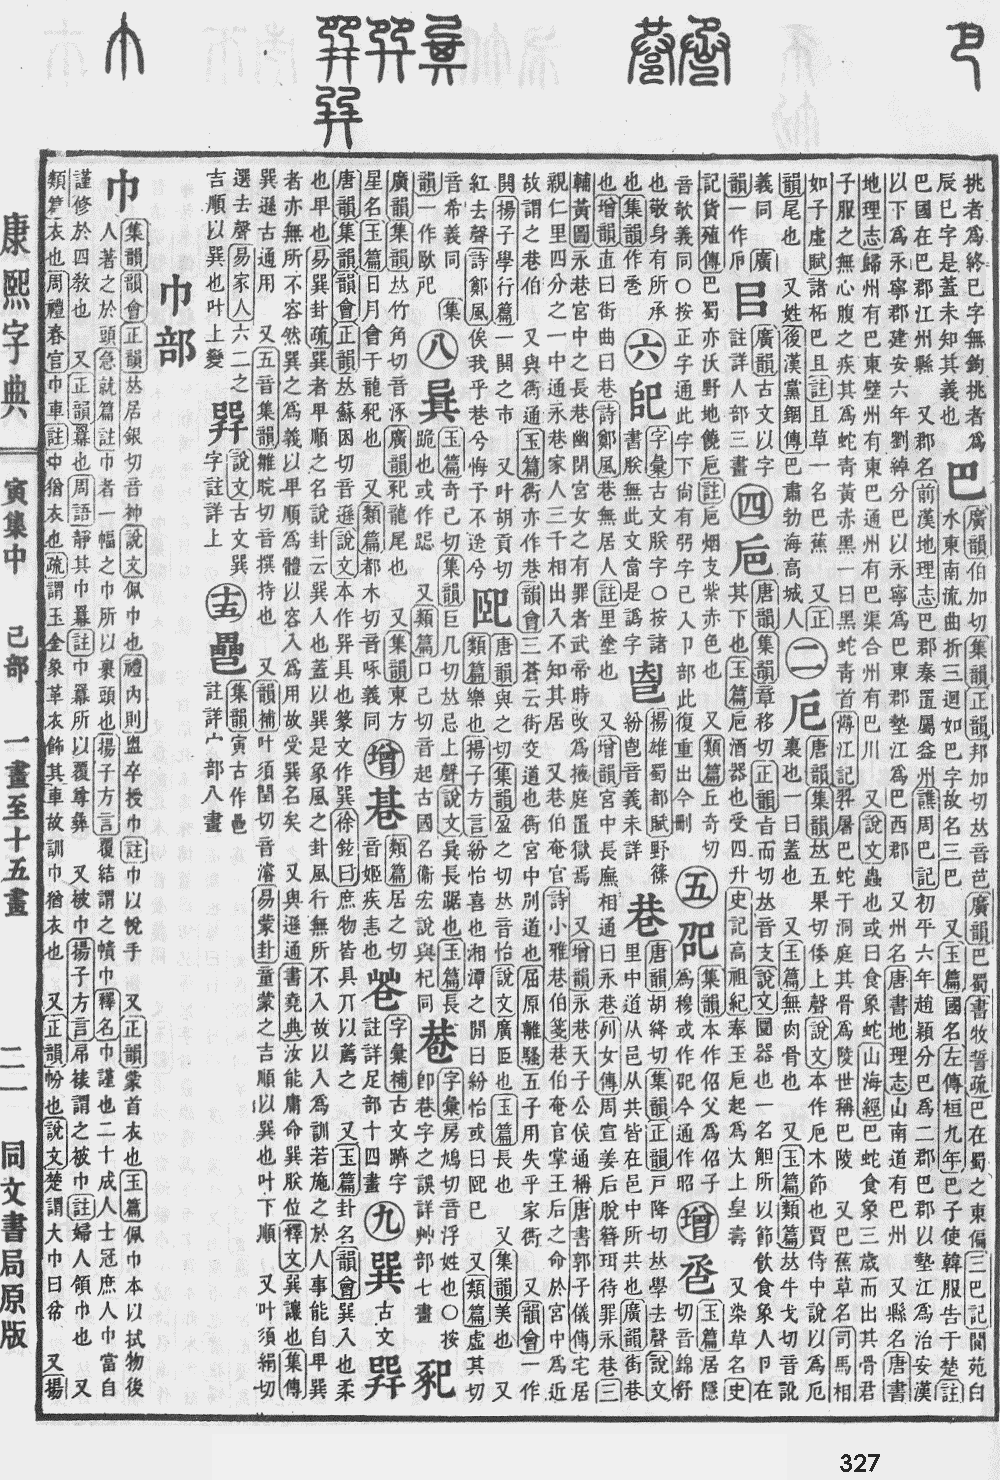 挑者爲終已字無鉤挑者爲
辰巳字是蓋未知其義也
巴
廣韻伯加切集韻正韻邦加切𠀤音芭廣韻巴蜀書牧誓疏巴在蜀之東偏三巴記閬苑白
水東南流曲折三迴如巴字故名三巴 又玉篇國名左傳桓九年巴子使韓服告于楚註
巴國在巴郡江州縣 又郡名前漢地理志巴郡秦置屬益州譙周巴記初平六年趙穎分巴爲二郡巴郡以墊江爲治安漢
以下爲永寧郡建安六年劉綽分巴以永寧爲巴東郡墊江爲巴西郡 又州名唐書地理志山南道有巴州 又縣名唐書
地理志歸州有巴東壁州有東巴通州有巴渠合州有巴川 又說文蟲也或曰食象蛇山海經巴蛇食象三歲而出其骨君
子服之無心腹之疾其爲蛇靑黃赤黑一曰黑蛇靑首潯江記羿屠巴蛇于洞庭其骨爲陵世稱巴陵 又巴蕉草名司馬相
如子虛賦諸柘巴且註且草一名巴蕉 又正
韻尾也 又姓後漢黨錮傳巴肅勃海高城人
二
戹
唐韻集韻𠀤五果切倭上聲說文本作戹木節也賈侍中說以爲戹
裹也一曰蓋也 又玉篇無肉骨也 又玉篇類篇𠀤牛戈切音訛
義同 廣
韻一作戹
㠯
廣韻古文以字
註詳人部三畫
四
巵
唐韻集韻章移切正韻旨而切𠀤音支說文圜器也一名觛所以節飮食象人卪在
其下也玉篇巵酒器也受四升史記高祖紀奉玉巵起爲大上皇壽 又染草名史
記貨殖傳巴蜀亦沃野地饒巵註巵烟支紫赤色也 又類篇丘奇切
音欹義同〇按正字通此字下尙有弜字已入卪部此復重出今刪
五
卲
集韻本作佋父爲佋子
爲穆或作卲今通作昭
增
巹
玉篇居隱
切音綿舒
也敬身有所承
也集韻作卺
六
䣛
字彙古文朕字〇按諸
書朕無此文當是譌字
揚雄蜀都賦野篠
紛鬯音義未詳
巷
唐韻胡絳切集韻正韻戸降切𠀤學去聲說文
里中道从邑从共皆在邑中所共也廣韻街巷
也增韻直曰街曲曰巷詩鄭風巷無居人註里塗也 又增韻宮中長廡相通曰永巷列女傳周宣姜后脫簪珥待罪永巷三
輔黃圖永巷宮中之長巷幽閉宮女之有罪者武帝時攺爲掖庭置獄焉 又增韻永巷天子公侯通稱唐書郭子儀傳宅居
親仁里四分之一中通永巷家人三千相出入不知其居 又巷伯奄官詩小雅巷伯箋巷伯奄官掌王后之命於宮中爲近
故謂之巷伯 又與衖通玉篇衖亦作巷韻會三蒼云街交道也衖宮中別道也屈原離騷五子用失乎家衖 又韻會一作
閧揚子學行篇一閧之市 又叶胡貢切
紅去聲詩鄭風俟我乎巷兮悔予不送兮
巸
唐韻與之切集韻盈之切𠀤音怡說文廣臣也玉篇長也 又集韻美也 又
類篇樂也揚子方言紛怡喜也湘潭之閒曰紛怡或曰巸巳 又類篇虛其切
音希義同 集
韻一作㺇戺
八
㠱
玉篇奇己切集韻巨几切𠀤忌上聲說文㠱長踞也玉篇長
跪也或作跽 又類篇口己切音起古國名衞宏說與杞同
巷
字彙房鳩切音浮姓也〇按
卽巷字之誤詳艸部七畫
廣韻集韻𠀤竹角切音涿廣韻犯龍尾也 又集韻東方
星名玉篇日月會于龍犯也 又類篇都木切音啄義同
增
㠱
類篇居之切
音姬疾恚也
字彙補古文躋字
註詳足部十四畫
九
巽
古文
唐韻集韻韻會正韻𠀤蘇困切音遜說文本作巺具也篆文作巽徐鉉曰庶物皆具丌以薦之 又玉篇卦名韻會巽入也柔
也𤰞也易巽卦疏巽者𤰞順之名說卦云巽入也蓋以巽是象風之卦風行無所不入故以入爲訓若施之於人事能自𤰞巽
者亦無所不容然巽之爲義以𤰞順爲體以容入爲用故受巽名矣 又與遜通書堯典汝能庸命巽朕位釋文巽讓也集傳
巽遜古通用 又五音集韻雛睆切音撰持也 又韻補叶須閏切音濬易蒙卦童蒙之吉順以巽也叶下順 又叶須絹切
選去聲易家人六二之
吉順以巽也叶上變
說文古文巽
字註詳上
十五
集韻寅古作
註詳宀部八畫
巾部
巾
集韻韻會正韻𠀤居銀切音神說文佩巾也禮內則盥卒授巾註巾以帨手 又正韻蒙首衣也玉篇佩巾本以拭物後
人著之於頭急就篇註巾者一幅之巾所以裹頭也揚子方言覆結謂之幘巾釋名巾謹也二十成人士冠庶人巾當自
謹修於四敎也 又正韻羃也周語靜其巾羃註巾羃所以覆尊彝 又被巾揚子方言帍裱謂之被巾註婦人領巾也 又
類篇衣也周禮春官巾車註巾猶衣也疏謂玉金象革衣飾其車故訓巾猶衣也 又正韻帉也說文楚謂大巾曰帉 又揚
康熙字典
寅集中 己部 一畫至十五畫
二一
同文書局原版
327